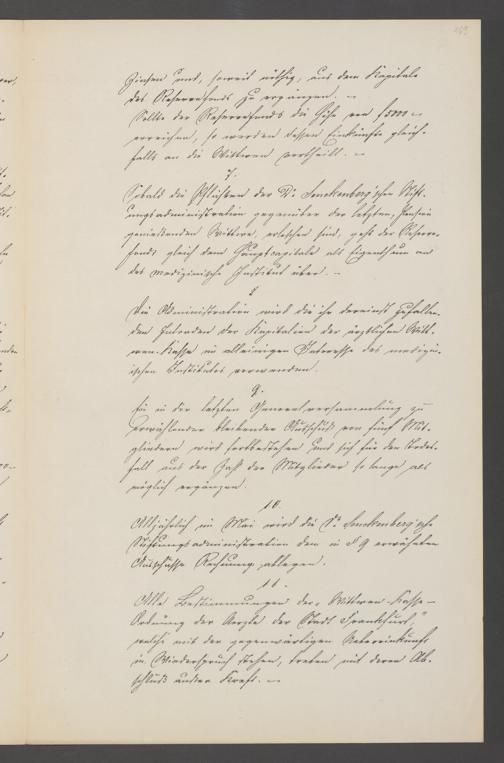 Zinsen und, soweit nöthig, aus dem Kapitale
des Reservefonds zu ergänzen. —
Sollte der Reservefonds die Höhe von f
erreichen, so werden dessen Einkünfte gleich-
falls an die Wittwen vertheilt. —
7.
Sobald die Pflichten der Dr. Senckenberg'schen Stift-
ungsadministration gegenüber der letzten, Pension
geniessenden Wittwe, erloschen sind, geht der Reserve-
fonds gleich dem Hauptcapitale als Eigenthum an
das medizinische Institut über. —
8
Die Administration wird die ihr dereinst zufallen-
den Intraden der Kapitalien der ärztlichen Witt-
wen-Kasse im alleinigen Interesse des medizin-
ischen Institutes verwenden.
9.
Ein in der letzten Generalversammlung zu
erwählender bleibender Ausschuß von fünf Mit-
gliedern wird fortbestehen und sich für den Todes-
fall aus der Zahl der Mitglieder so lange als
möglich ergänzen.
10.
Alljährlich im Mai wird die Dr. Senckenberg'sche
Stiftungsadministration dem in § 9 erwähnten
Ausschusse Rechnung ablegen.
11.
Alle Bestimmungen der „Wittwen-Kasse-
Ordnung der Aerzte der Stadt Frankfurt",
welche mit der gegenwärtigen Uebereinkunft
in Wiederspruch stehen, treten mit deren Ab-
schluß außer Kraft. —